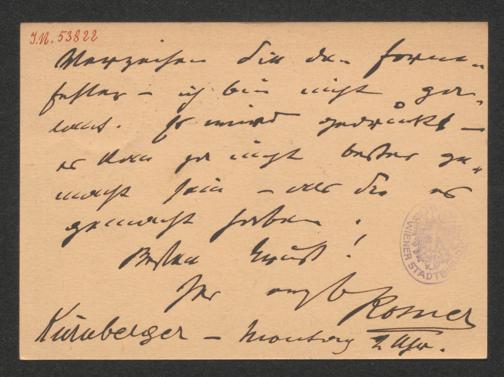 J.N. 53822
Verzeihen Sie den Form-
fehler – ich bin nicht ge-
naus. Es wird gedruckt –
es kann ja nicht besser ge-
macht sein – als Sie es
gemacht haben.
Besten Gruß!
Ihr ergb
Rosner
Kürnberger – Montag 2 Uhr.
WIENER STADTBI